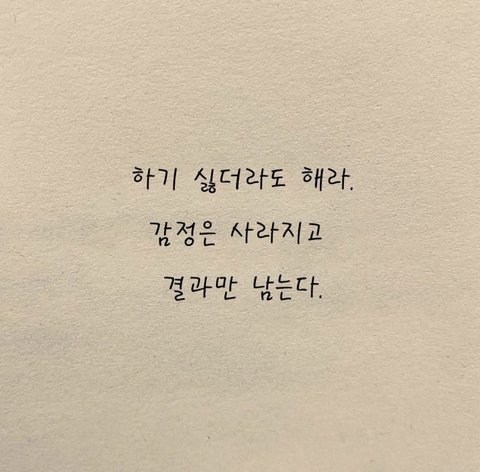 하기 싫더라도 해라.
감정은 사라지고
결과만 남는다.